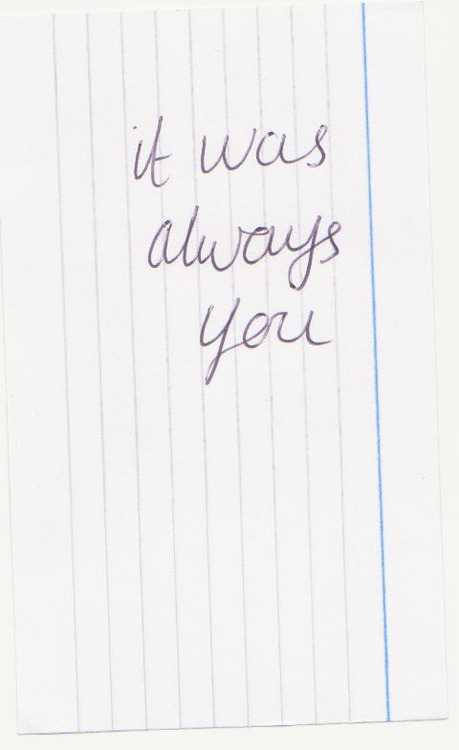 it was
always
you